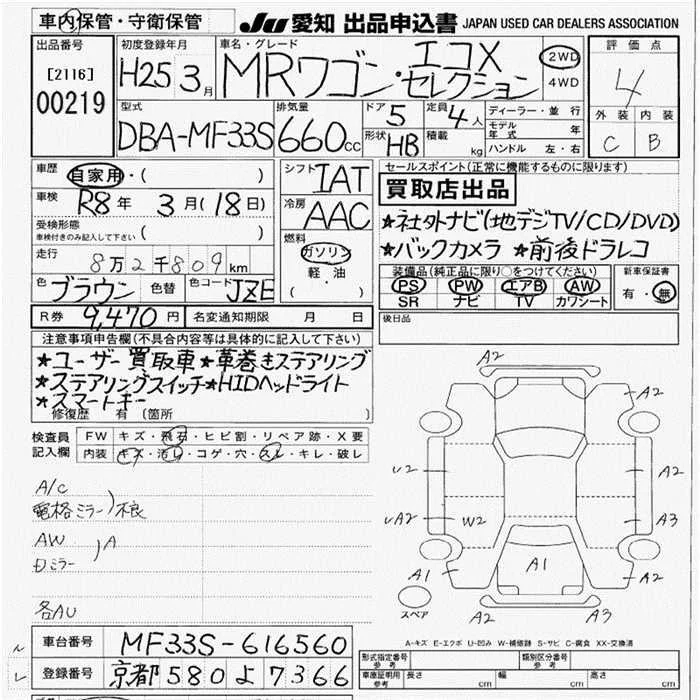 車内保管・守衛保管
JU 愛知 出品申込書 JAPAN USED CAR DEALERS ASSOCIATION
出品番号
[2116]
00219
初度登録年月
H25 3月
車名・グレード
MRワゴン・エコX セレクション
2WD
4WD
評価点
4
外装 内装
C B
型式
DBA-MF33S
排気量
660cc
ドア 5
形状 HB
定員 4人
積載 kg
ディーラー・並行
モデル年式 年
ハンドル 左・右
車歴 自家用・( )
車検 R8年 3月(18日)
受検形態
車検付きのみ記入して下さい ( )
走行 8万2千809km
色 ブラウン 色替 色コード JZE
シフト IAT
冷房 AAC
燃料
ガソリン
軽油
(・)
セールスポイント(正常に機能するものに限ります)
買取店出品
★社外ナビ(地デジTV/CD/DVD)
★バックカメラ ★前後ドラレコ
装備品(純正品に限り○をつけてください)
PS PW エアB AW
SR ナビ TV カワシート
新車保証書
有・無
R券 9,470円 名変通知期限 月 日
後日品
注意事項申告欄(不具合内容等は具体的に記入して下さい)
★ユーザー買取車★革巻きステアリング
★ステアリングスイッチ★HIDヘッドライト
★スマートキー
修復歴 有 (箇所 )
検査員記入欄
FW キズ・飛石・ヒビ割・リペア跡・X要
内装 キズ・汚レ・コゲ・穴・スレ・キレ・破レ
A/C
電格ミラー)不良
AW
Dミラー)A
各AU
A2
A2
U2
A2
UA2
W2
A3
A1
A1
A2
スペア
A2
A3
A-キズ E-エクボ U-凹み W-補修跡 S-サビ C-腐食 XX-交換済
車台番号 MF33S-616560
登録番号 京都 580 よ 7366
形式指定番号 参考
類別区分番号 参考
車庫証明用 参考 長さ cm 幅 cm 高さ cm